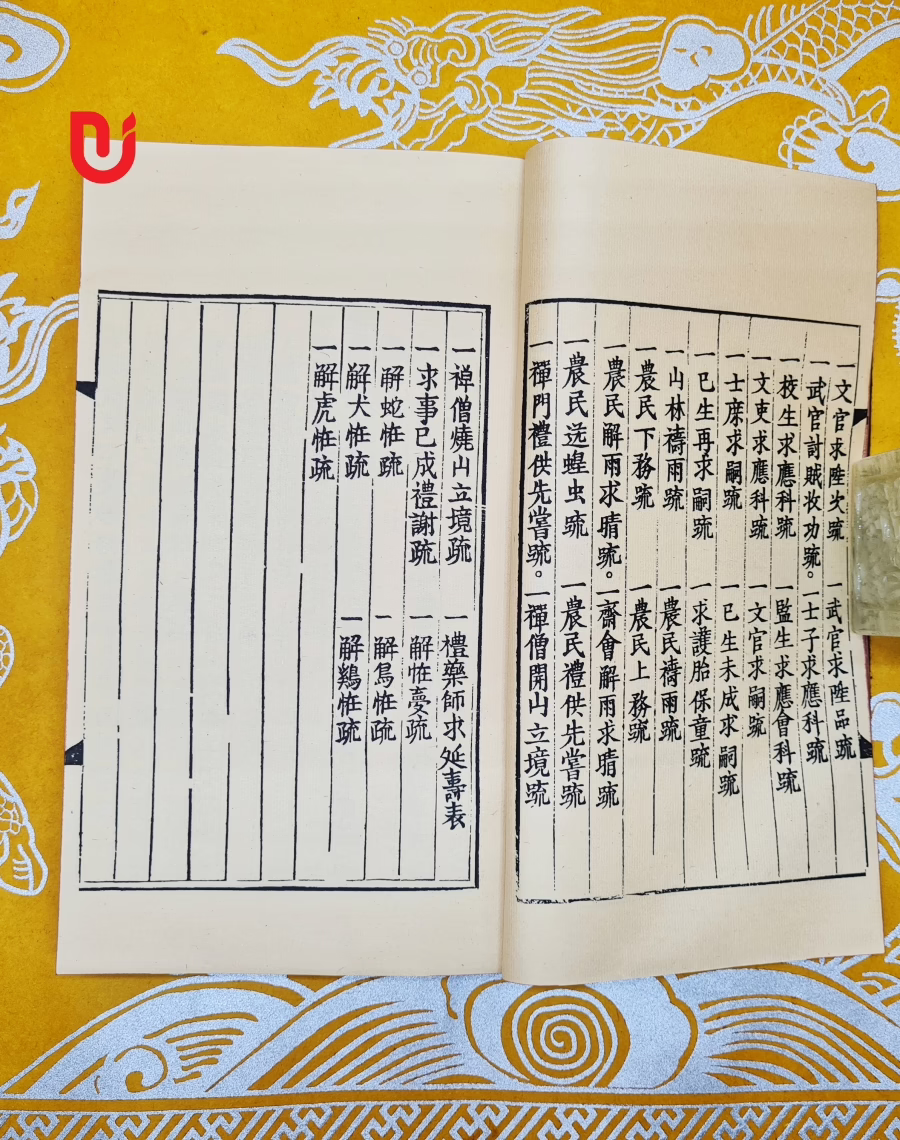 一文官求陞次䟽 一武官求陞品䟽
一武官討賊收功䟽。一士子求應科䟽
一校生求應科䟽 一監生求應會科䟽
一文吏求應科䟽 一文官求嗣䟽
一士庶求嗣䟽 一已生未成求嗣䟽
一已生再求嗣䟽 一求護胎保童䟽
一山林禱雨䟽 一農民禱雨䟽
一農民下務䟽 一農民上務䟽
一農民解雨求晴䟽。一齋會解雨求晴䟽
一農民送蝗虫䟽 一農民禮供先嘗䟽
一禪門禮供先嘗䟽。一禪僧開山立境䟽
一禅僧燒山立境䟽 一禮藥師求延壽表
一求事已成禮謝䟽 一解恠夢䟽
一解蛇恠䟽 一解鳥恠䟽
一解犬恠䟽 一解鷄恠䟽
一解虎恠䟽